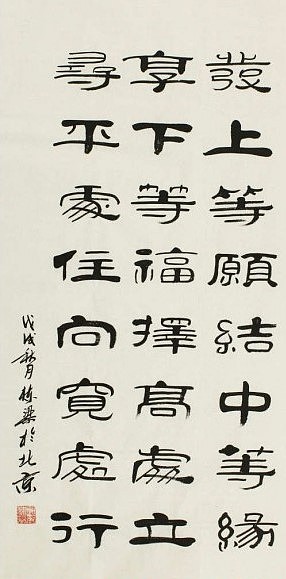 發上等願結中等緣
享下等福擇高處立
尋平處住向寬處行
戊戌秋月栋梁於北京